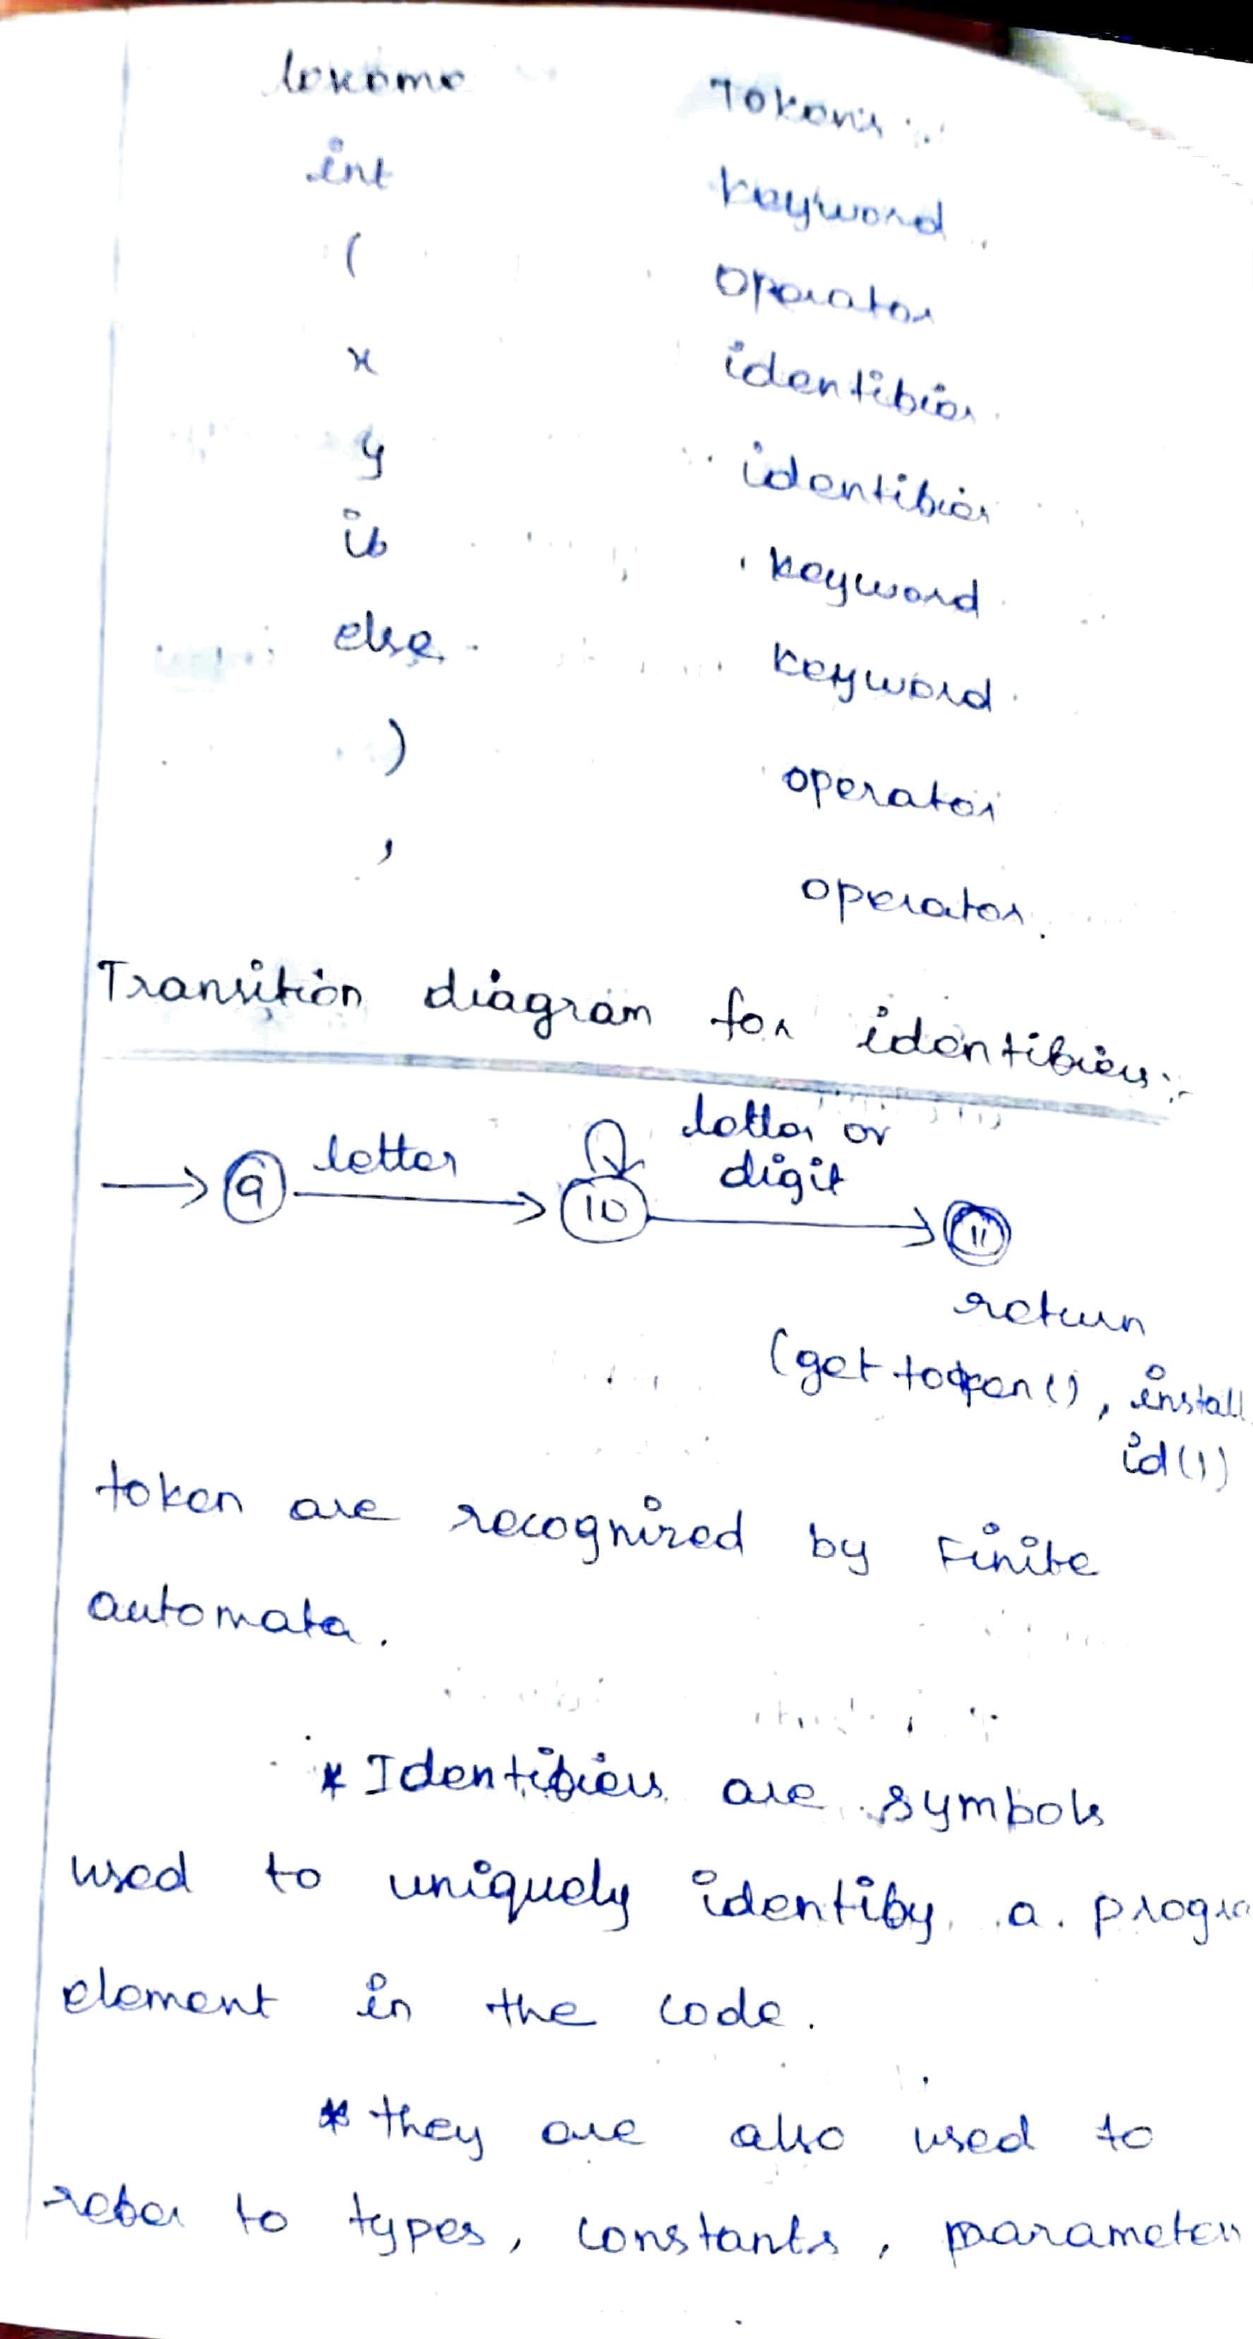 lexeme Tokens :-
int keyword
( operator
x identifier
y identifier
if keyword
else keyword
) operator
, operator.
Transition diagram for identifiers:-
letter or
letter digit
9 10 11
return
(get token(), install
id())
token are recognized by Finite
automata.
* Identifiers are symbols
used to uniquely identify a progra
element in the code.
* they are also used to
refer to types, constants, parameters